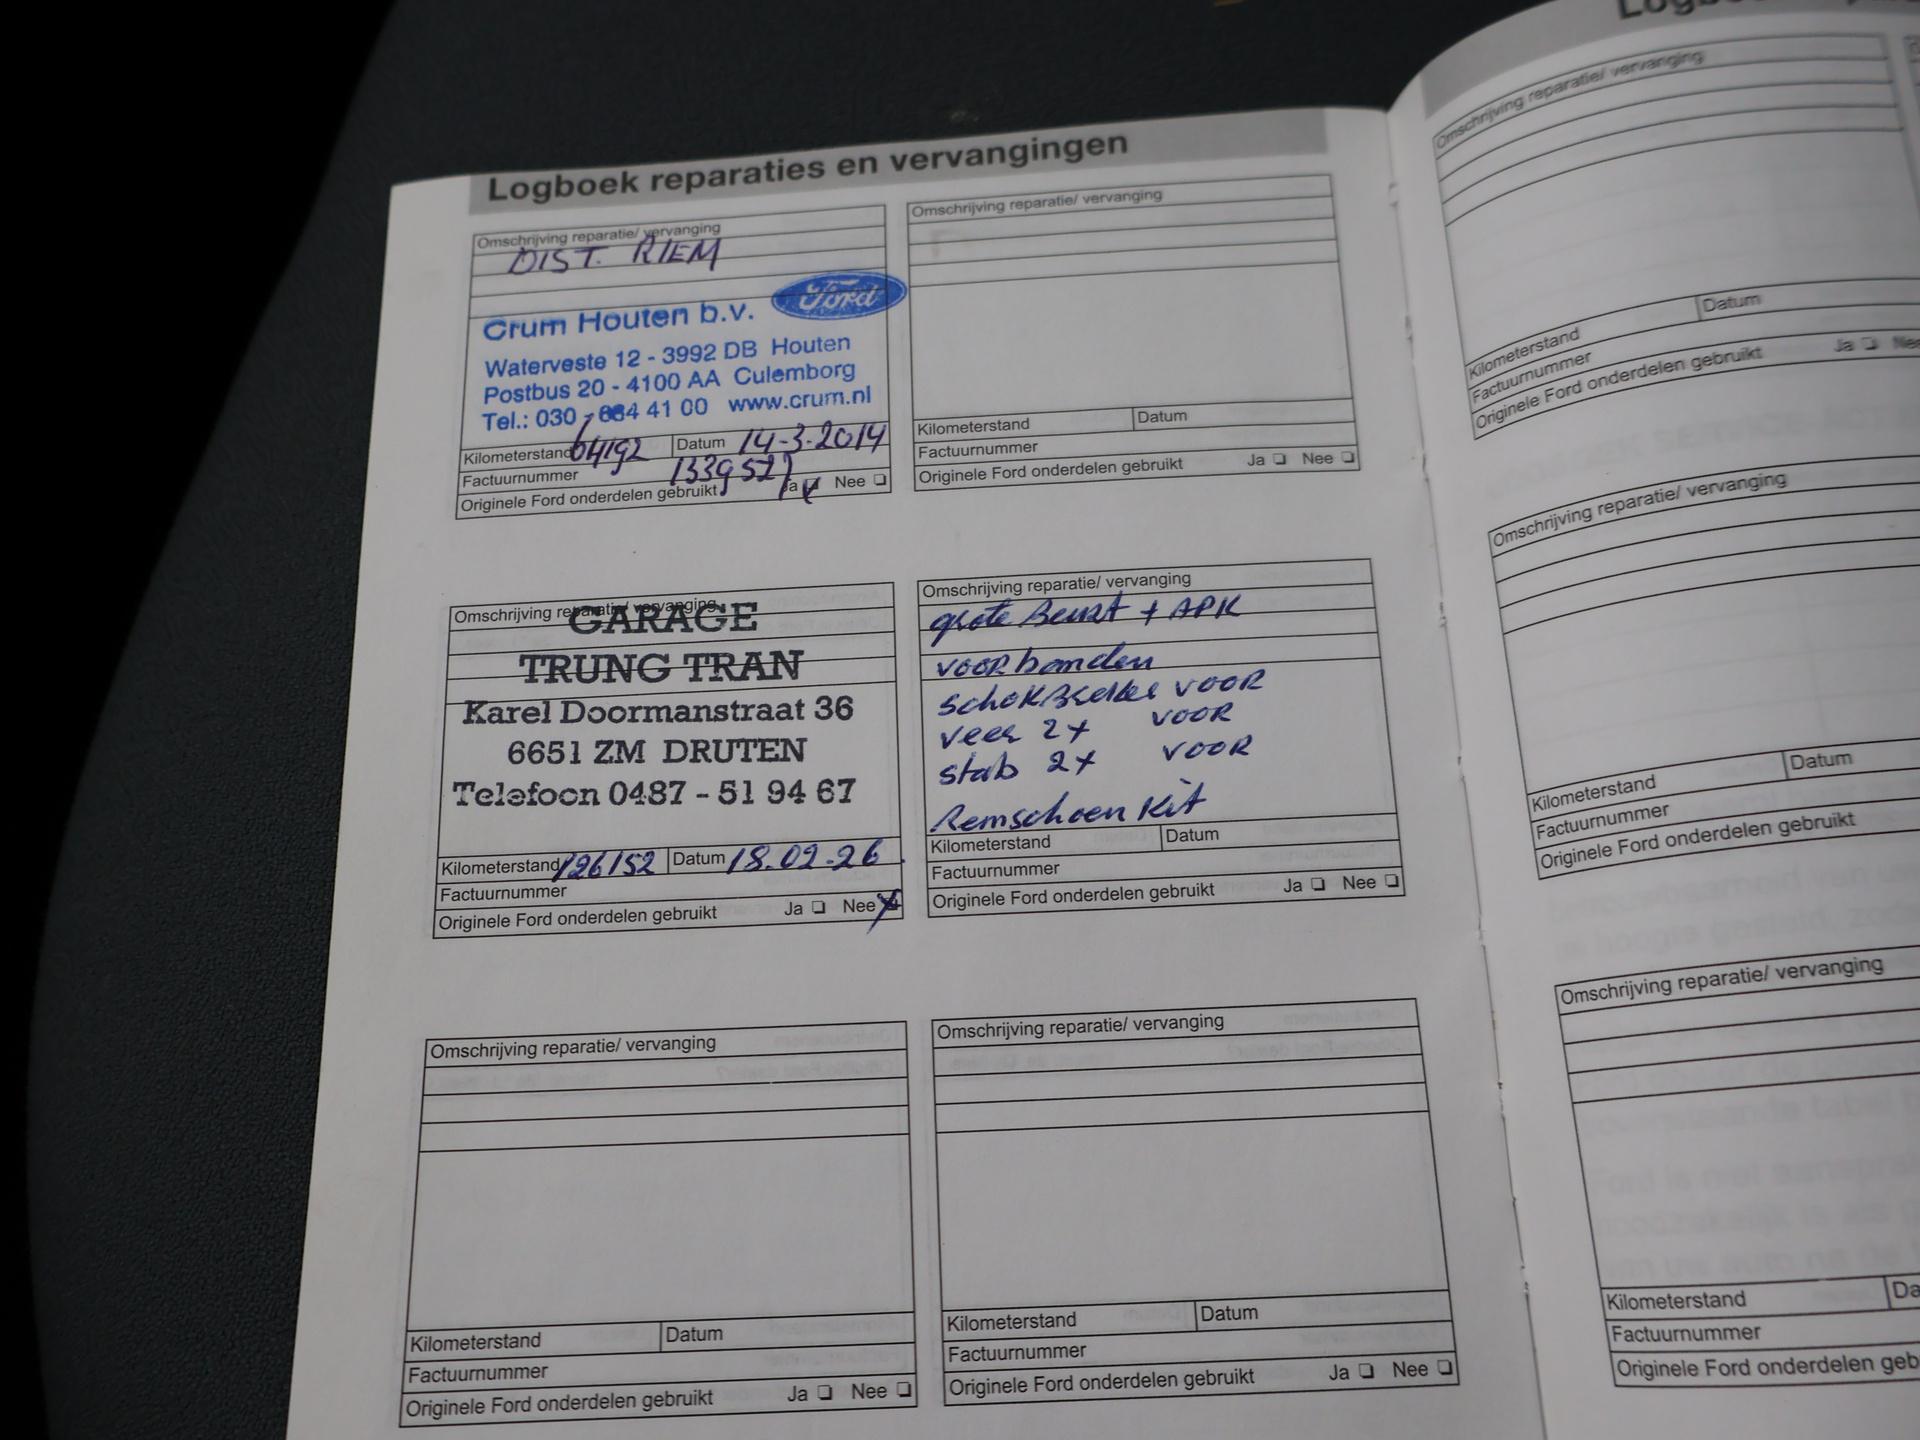 Logboek reparaties en vervangingen
Omschrijving reparatie/ vervanging
DIST. RIEM
Ford
Crum Houten b.v.
Waterveste 12 - 3992 DB Houten
Postbus 20 - 4100 AA Culemborg
Tel.: 030 - 634 41 00 www.crum.nl
Kilometerstand 64192 Datum 14-3-2014
Factuurnummer 1339527
Originele Ford onderdelen gebruikt Ja Nee
Omschrijving reparatie/ vervanging
Kilometerstand Datum
Factuurnummer
Originele Ford onderdelen gebruikt Ja Nee
Omschrijving reparatie/ vervanging
GARAGE
TRUNG TRAN
Karel Doormanstraat 36
6651 ZM DRUTEN
Telefoon 0487 - 51 94 67
Kilometerstand 126152 Datum 18-02-26
Factuurnummer
Originele Ford onderdelen gebruikt Ja Nee
Omschrijving reparatie/ vervanging
grote Beurt + APK
voorbanden
schokbreker VOOR
veer 2x VOOR
stab 2x VOOR
Remschoen Kit
Kilometerstand Datum
Factuurnummer
Originele Ford onderdelen gebruikt Ja Nee
Omschrijving reparatie/ vervanging
Kilometerstand Datum
Factuurnummer
Originele Ford onderdelen gebruikt Ja Nee
Omschrijving reparatie/ vervanging
Kilometerstand Datum
Factuurnummer
Originele Ford onderdelen gebruikt Ja Nee
Omschrijving reparatie/ vervanging
Kilometerstand Datum
Factuurnummer
Originele Ford onderdelen gebruikt Ja Nee
Omschrijving reparatie/ vervanging
Kilometerstand Datum
Factuurnummer
Originele Ford onderdelen gebruikt
Omschrijving reparatie/ vervanging
Kilometerstand Da
Factuurnummer
Originele Ford onderdelen geb